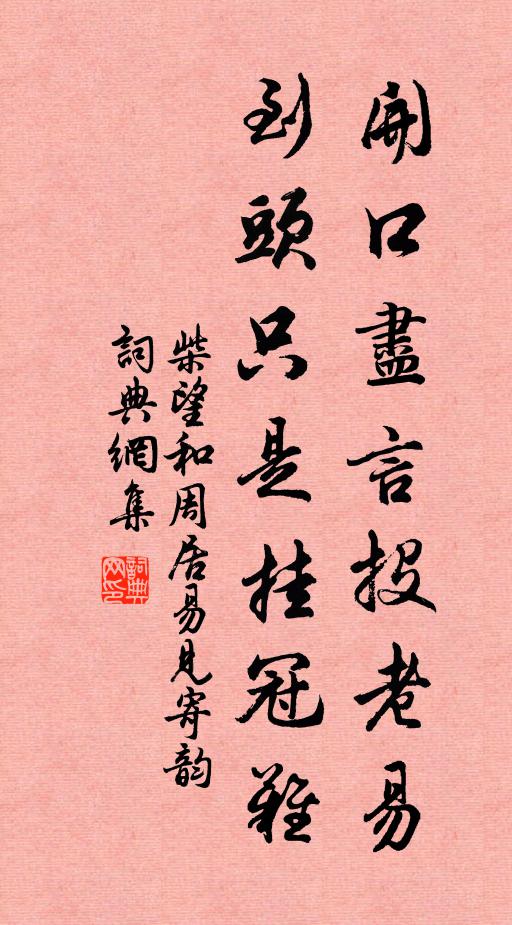 開口盡言投老易
到頭只是挂冠難
柴望和周居易見寄韵
詞典網集
詞典網印